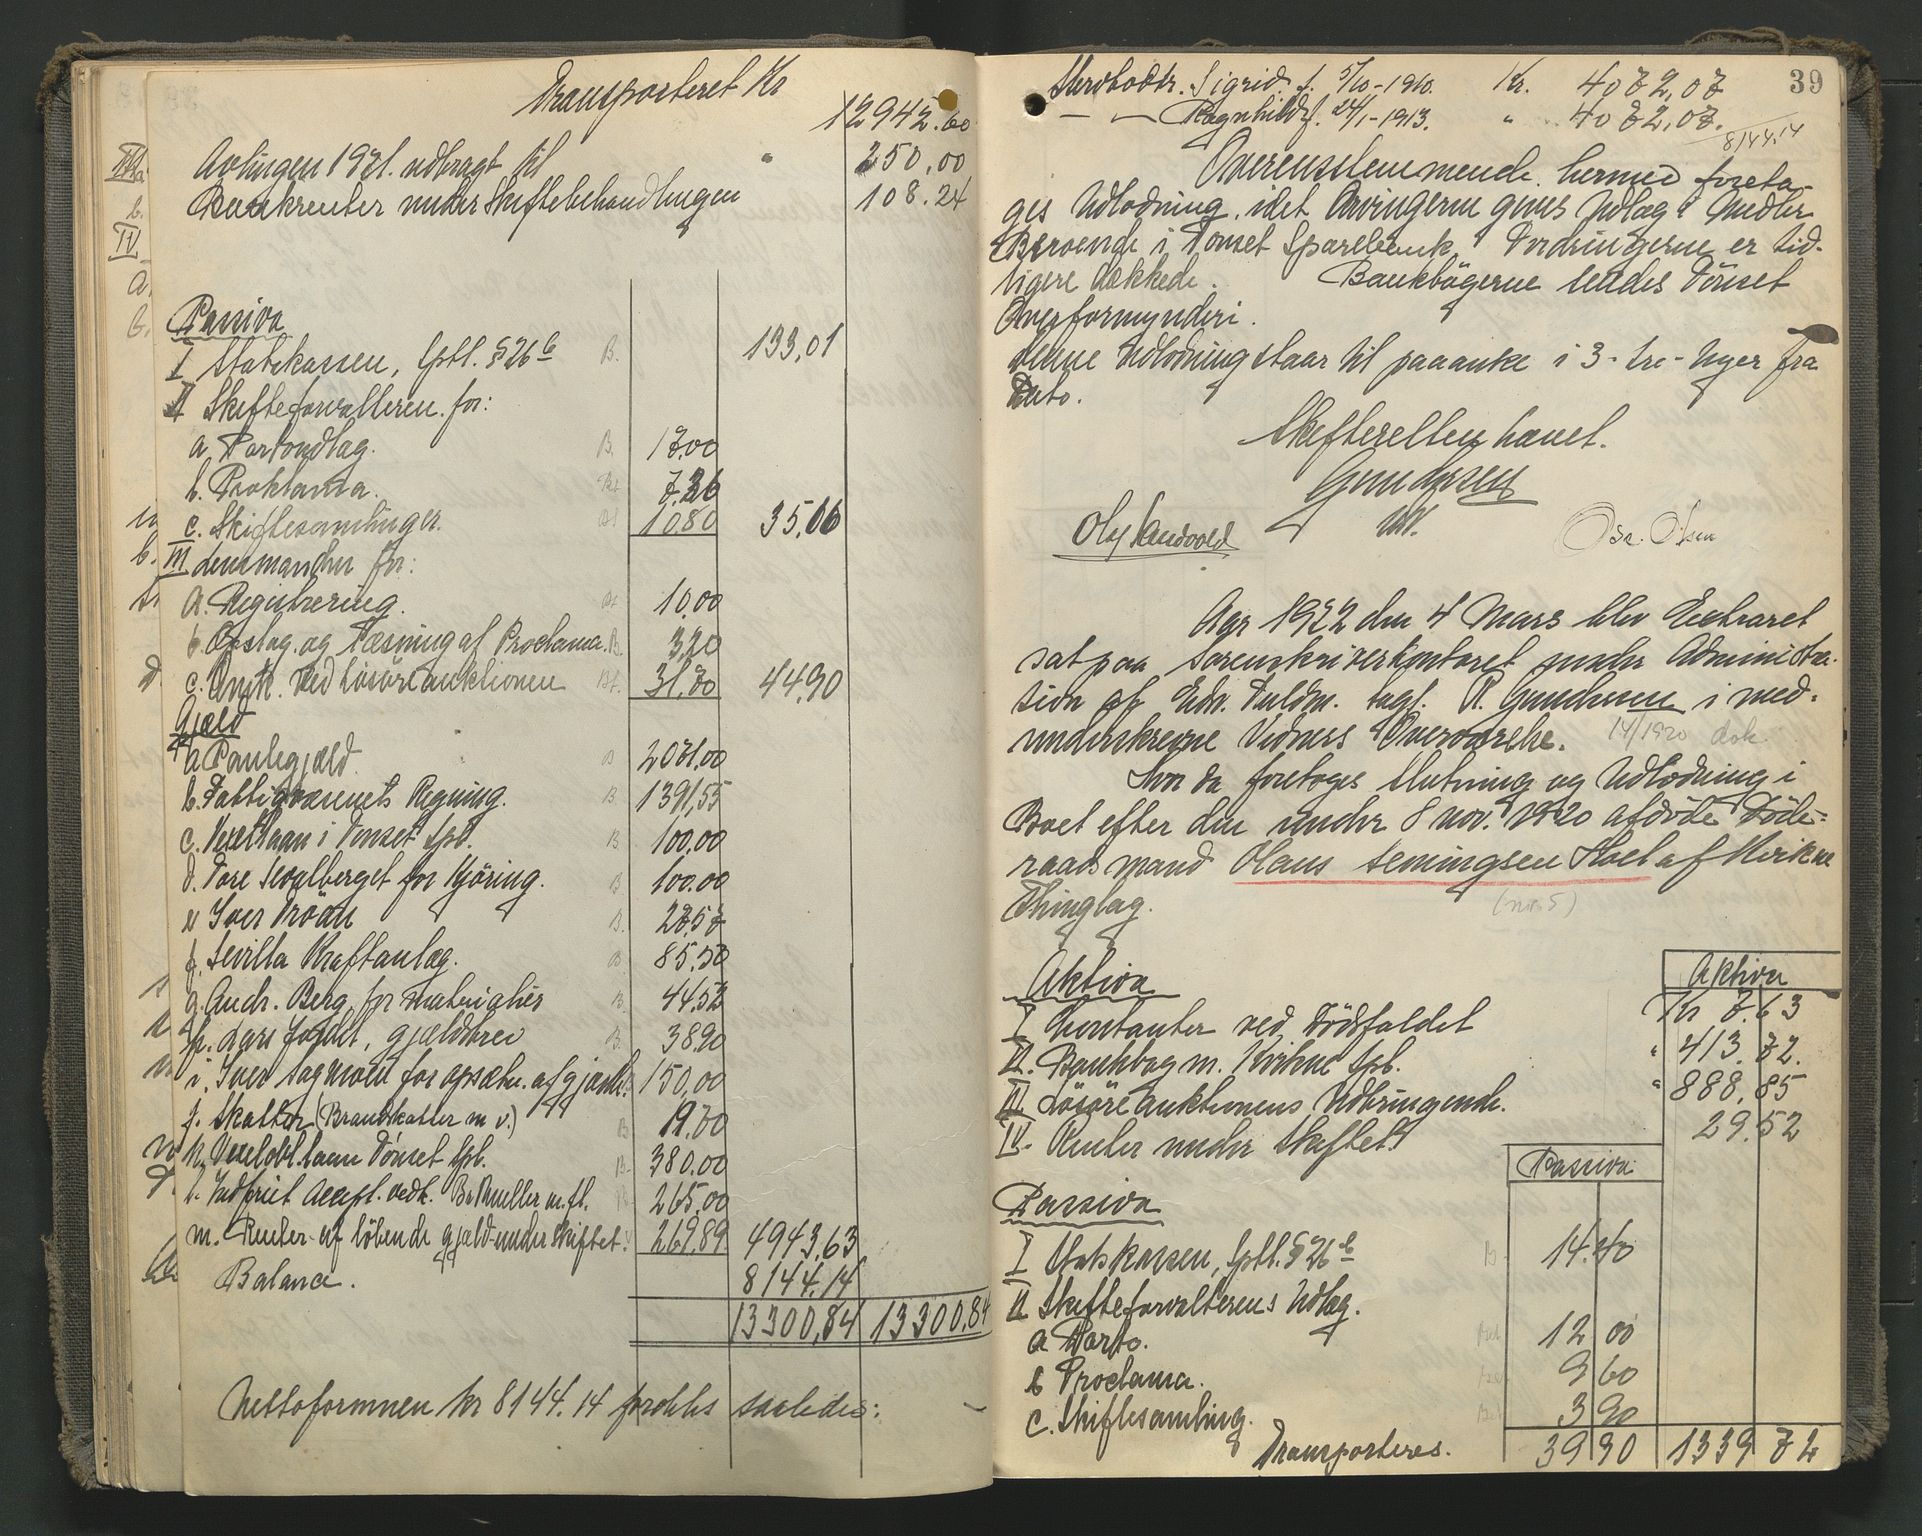 Transporteret Kr
12942.60
Avlingen 1921. udbragt til " 250,00
Bankrenter under Skiftebehandlingen 108.24
Passiva
I Statskassen, Sptl. § 26 b B. 133,01
II Skifteforvalteren for:
a. Portoudlag. B. 17.00
b. Proklama. 7.26
c. Skiftesamlinger. 10.80 35,06
III Lensmanden for:
a. Registrering. 10.00
b. Opslag. og Læsning af Proclama. B. 3.20
c. ved Løsøreauktionen 31.70 44.90
Gjæld
a. Pantegjæld. B 2071.00
b. Fattigvæsnets Regning. B 1391,55
c. Vexellaan i Tønset Spb. B 100.00
d. Tore Sevalberget for Kjöring. B 100.00
e Iver Tröen B. 27.57
f. Sevilla Kraftanlæg. B 85.50
g. Andr. Berg, for materialier B. 44.52
h. Lars , gjældsbrev B. 38.90
i. Iver for opsætn. af 150,00
j. Skatter (Brandskatter m v.) B 19.70
k. Vexelobl. laan Tönset Spb. B. 380.00
l. Indfriet Accept. vedk. m. fl. B 265,00
m. Renter af löbende gjæld under Skiftet. 269,89 4943,63
Balance. 8144.14
13300,84 13300,84
Nettoformuen kr 8144.14 fordeles saaledes: -
39
Sigrid f. 5/10-1910. Kr. 4072,07
— — Ragnhild f. 24/1-1913. " 4072,07.
8144.14
Overensstemmende hermed foreta-
ges Udlodning, idet Arvingerne gives Udlæg i Midler
Beroende i Tønset Sparebank. Fordringerne er tid-
ligere dækkede. Bankbøgerne sendes Tönset
Overformynderi.
Denne Udlodning staar til paaanke i 3- tre- Uger fra
Dato.
Skifteretten hævet.
Gundersen
Olaf Sandvold Br. Olsen
Aar 1922 den 4 Mars blev Extraret
sat paa Sorenskriverkontoret under Administra-
tion af Edv. Fuldm. R. Gundersen i med-
underskrevne Vidners Overværelse. 14/1920 dok.
Hvor da foretoges Slutning og Udlodning i
Boet efter den under 8 nov. 1920 afdøde Föde-
raads mand Olaus Semingsen Hoel af Kvikne
Thinglag. (nr. 5)
Aktiva Aktiva
I Kontanter ved Dödsfaldet Kr 7.63
II. Bankbog m. Kvikne Spb. " 413.72.
III Lösöreauktionens Udbringende. " 888,85
IV. Renter under Skiftet 29.52
Passiva
Passiva
I Statskassen, Sptl. § 26 b B. 14.40
II Skifteforvalterens Udlæg.
a Porto. 12 00
b Proclama. 9 60
c. Skiftesamling. 3 90
Transporteres. 39 90 1339 72